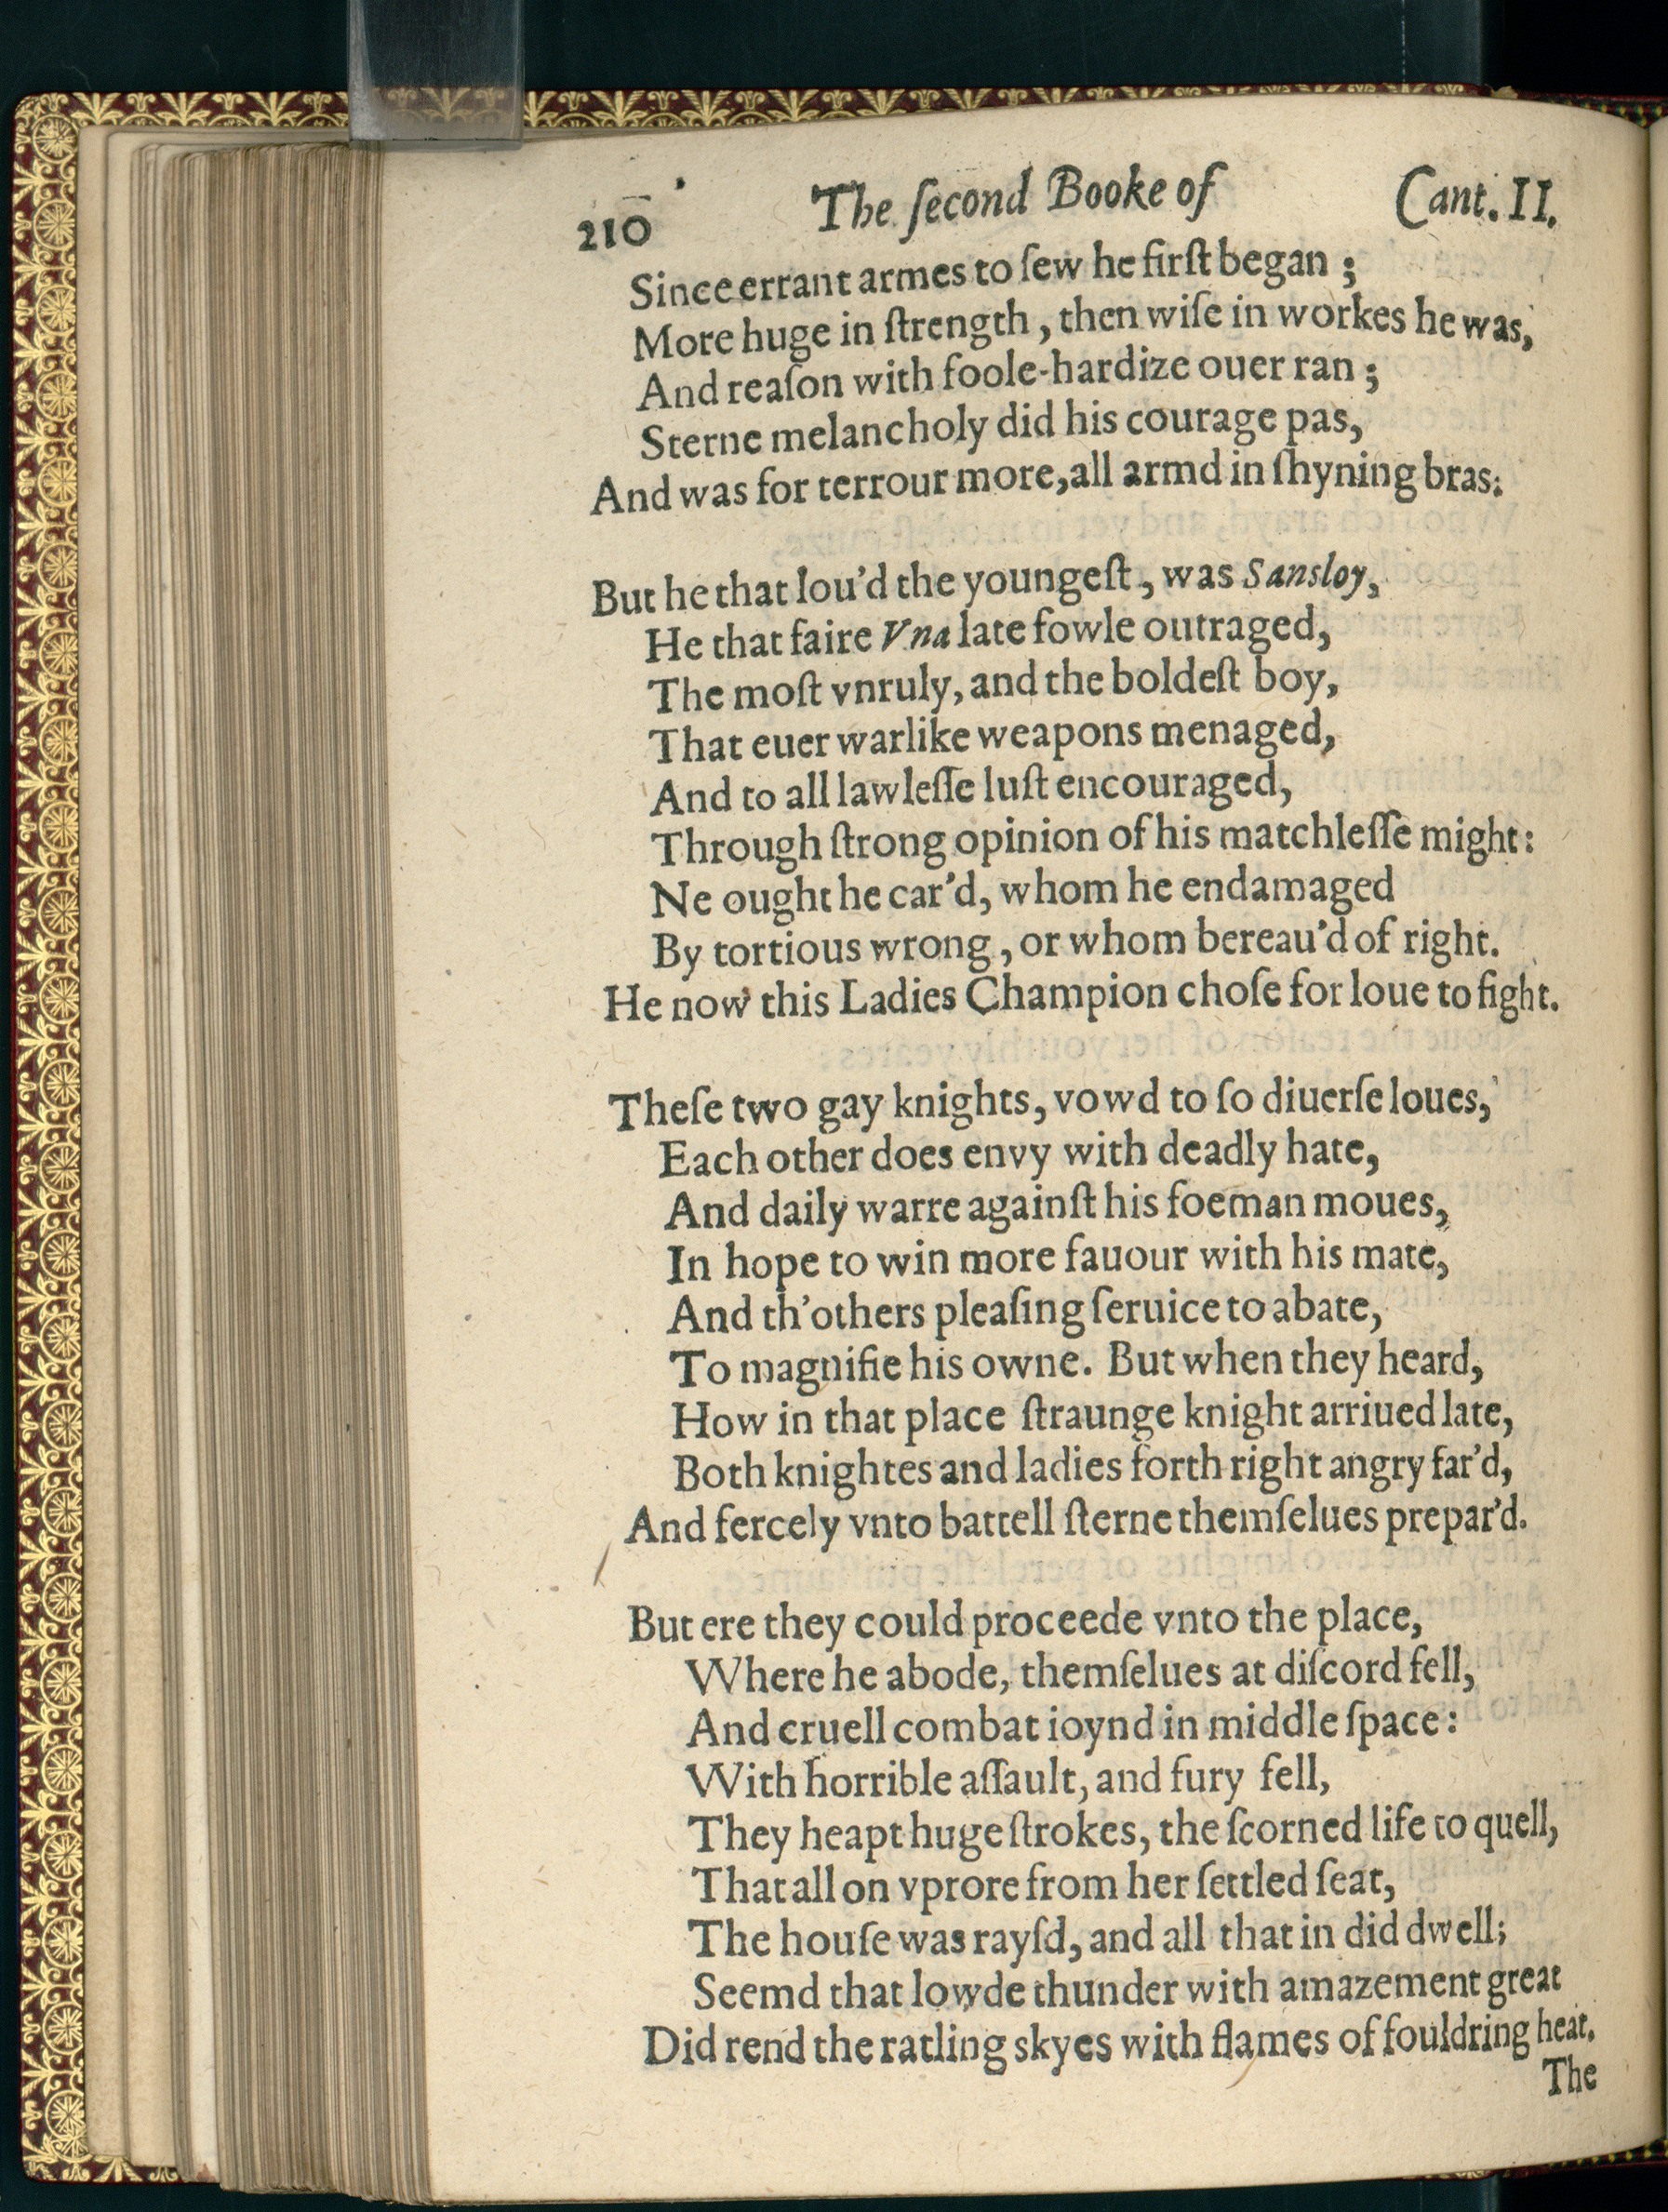 210 The ſecond Booke of Cant. II.
Since errant armes to ſew he firſt began;
More huge in ſtrength, then wiſe in workes he was,
And reaſon with foole-hardize ouer ran;
Sterne melancholy did his courage pas,
And was for terrour more, all armd in ſhyning bras.
But he that lou'd the youngeſt, was Sansloy,
He that faire Vna late fowle outraged,
The moſt vnruly, and the boldeſt boy,
That euer warlike weapons menaged,
And to all lawleſſe luſt encouraged,
Through ſtrong opinion of his matchleſſe might:
Ne ought he car'd, whom he endamaged
By tortious wrong, or whom bereau'd of right.
He now this Ladies Champion choſe for loue to fight.
Theſe two gay knights, vowd to ſo diuerſe loues,
Each other does envy with deadly hate,
And daily warre againſt his foeman moues,
In hope to win more fauour with his mate,
And th'others pleaſing ſeruice to abate,
To magnifie his owne. But when they heard,
How in that place ſtraunge knight arriued late,
Both knightes and ladies forth right angry far'd,
And fercely vnto battell ſterne themſelues prepar'd.
But ere they could proceede vnto the place,
Where he abode, themſelues at diſcord fell,
And cruell combat ioynd in middle ſpace:
With horrible aſſault, and fury fell,
They heapt huge ſtrokes, the ſcorned life to quell,
That all on vprore from her ſettled ſeat,
The houſe was rayſd, and all that in did dwell;
Seemd that lowde thunder with amazement great
Did rend the ratling skyes with flames of fouldring heat.
The